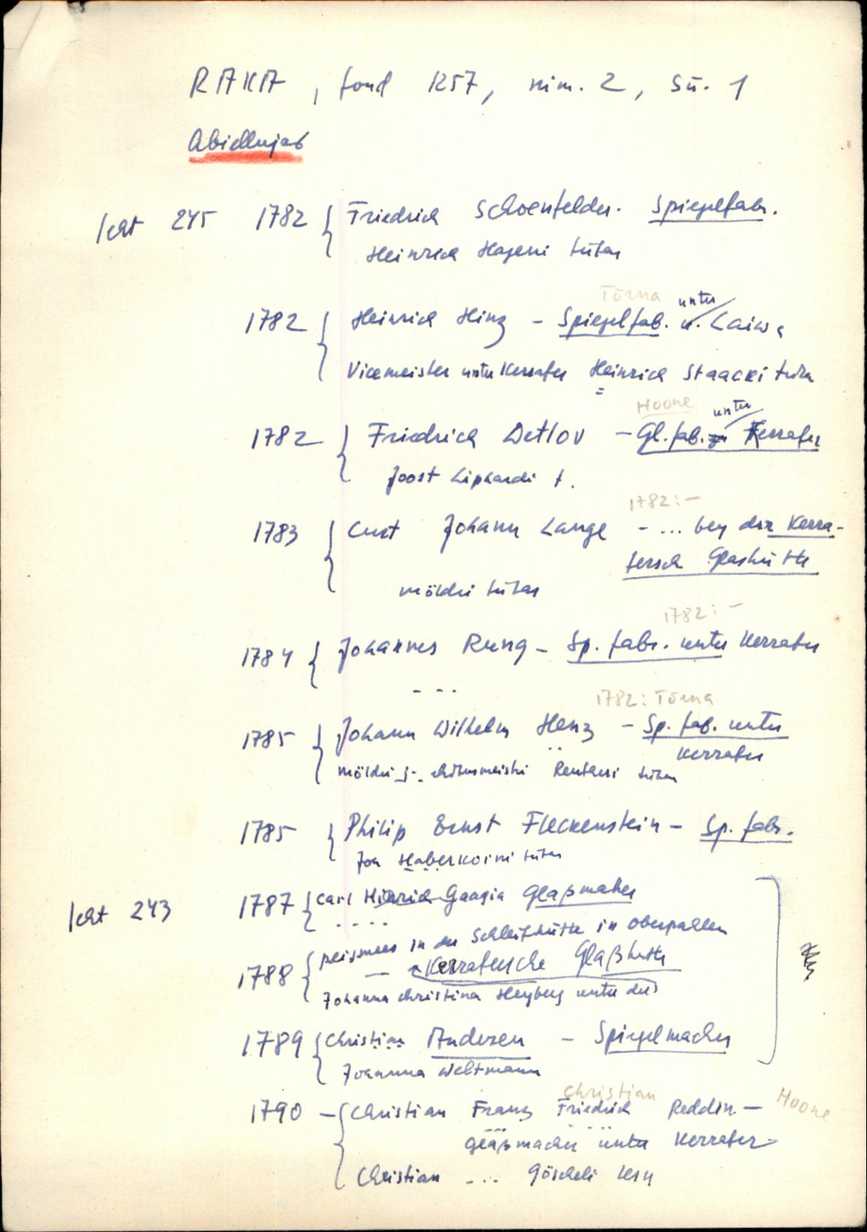 RAKA, fond 1257, nim. 2, sü. 1
Abiellujad
lht 245 1782 { Friedrich Schoenfelder. Spiegelfabr.
Heinrich Hageni tütar
Tõrna unter
1782 { Heinrich Hinz – Spiegelfab. u. Laiwa
Vicemeister unter Kerrafer Heinrich Staacki tütar
Hoone unter
1782 } Friedrich Detlov – Gl. fab. Kerrafer
Joost Liphardi t.
1782:–
1783 { Curt Johann Lange – ... bey der Kerra-
fersch Glashütte
möldri tütar
1782:–
1784 { Johannes Rung – Sp. fabr. unter Kerrafer
- - -
1782: Tõrna
1785 { Johann Wilhelm Henz – Sp. fab. unter
Kerrafer
möldri j. tütar
1785 { Philip Ernst Fleckenstein – Sp. fabr.
Joh Haberkorni tütar
lht 243 1787 { Carl Hinrich Gaagia Glaßmacher
- - - -
1788 { in der Schleifhütte in Oberpahlen
— Kerrafersche Glaßhütte
Johanna Christina Heyberg unter des
1789 { Christian Anderen – Spiegelmacher
Johanna Weltmann
Christian
1790 – { Christian Franz Friedrich Reddin – Hoone
glaßmacher unter Kerrafer
Christian ... Göscheli lesn